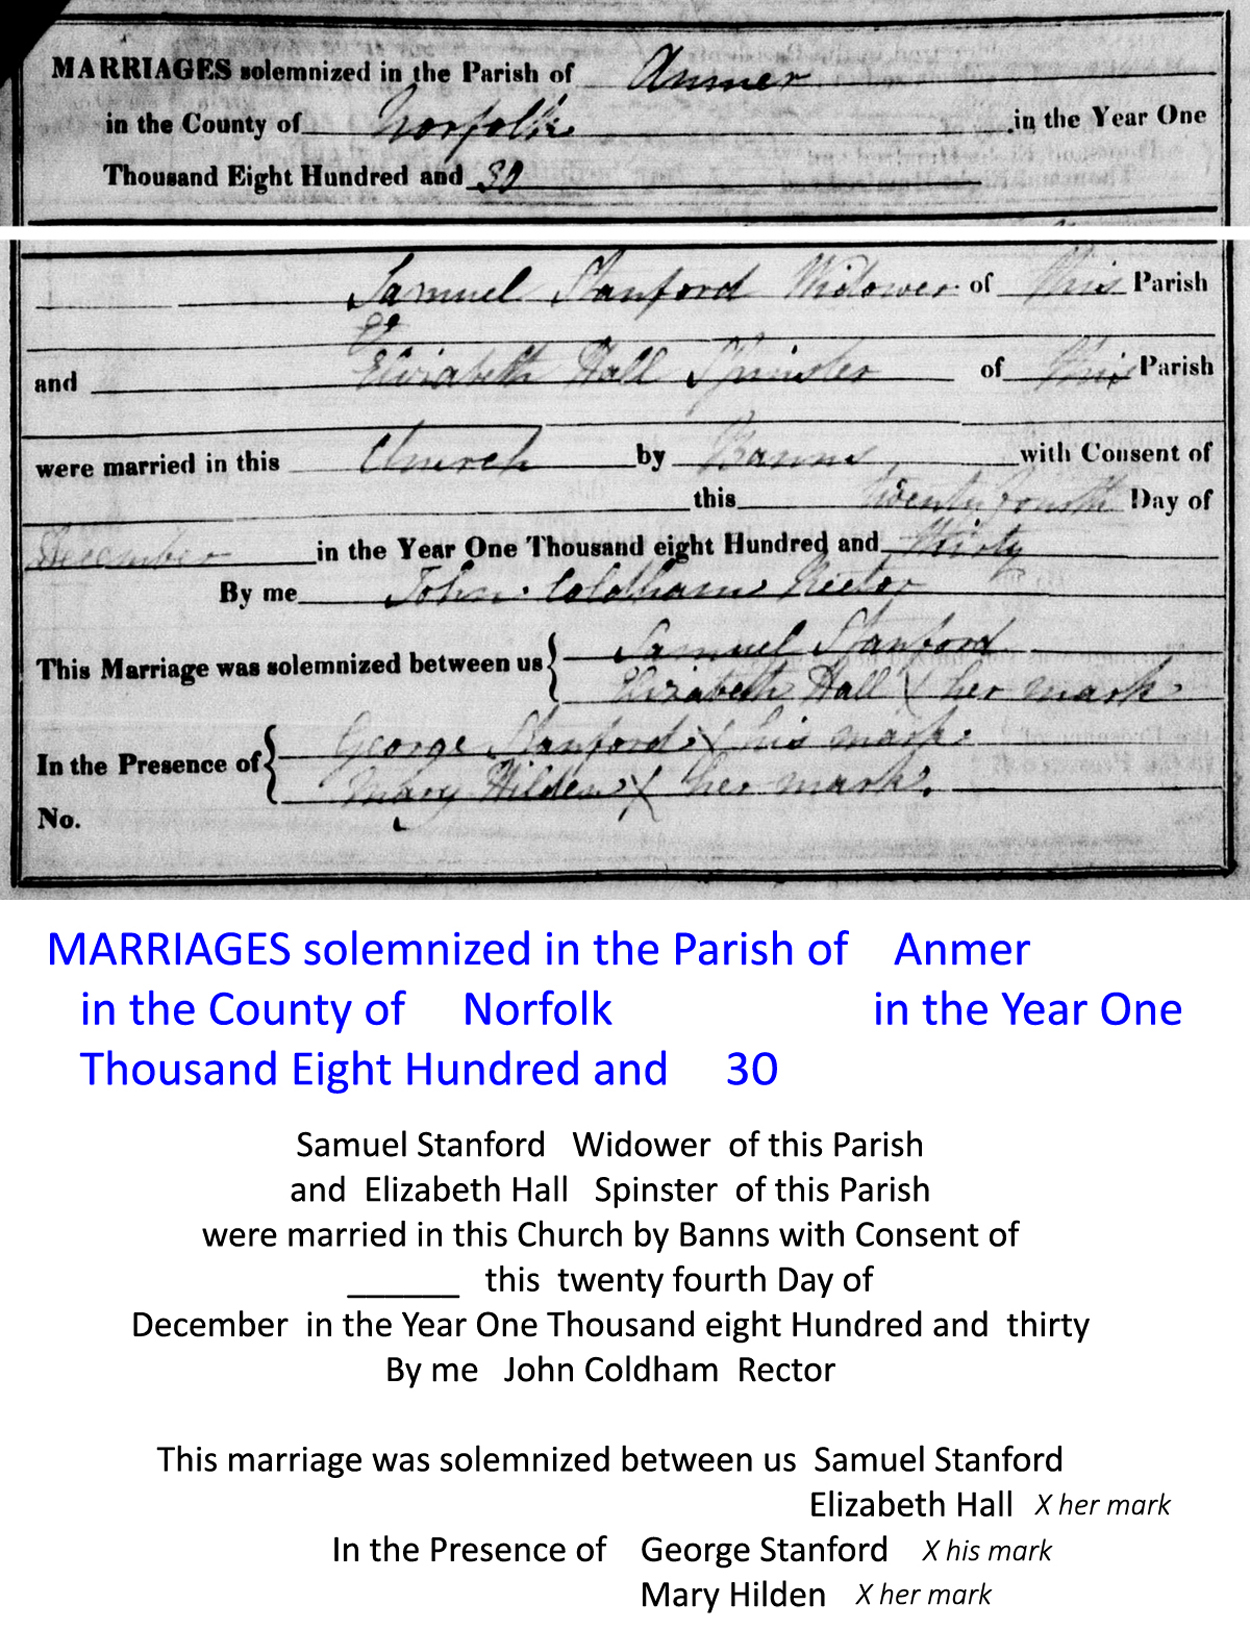 MARRIAGES solemnized in the Parish of Anmer
in the County of Norfolk in the Year One
Thousand Eight Hundred and 30
Samuel Stanford Widower of this Parish
&
and Elizabeth Hall Spinster of this Parish
were married in this Church by Banns with Consent of
this twenty fourth Day of
December in the Year One Thousand eight Hundred and thirty
By me John Coldham Rector
This Marriage was solemnized between us { Samuel Stanford
Elizabeth Hall X her mark
In the Presence of { George Stanford X his mark
Mary Hilden X her mark.
No.
MARRIAGES solemnized in the Parish of Anmer
in the County of Norfolk in the Year One
Thousand Eight Hundred and 30
Samuel Stanford Widower of this Parish
and Elizabeth Hall Spinster of this Parish
were married in this Church by Banns with Consent of
______ this twenty fourth Day of
December in the Year One Thousand eight Hundred and thirty
By me John Coldham Rector
This marriage was solemnized between us Samuel Stanford
Elizabeth Hall X her mark
In the Presence of George Stanford X his mark
Mary Hilden X her mark